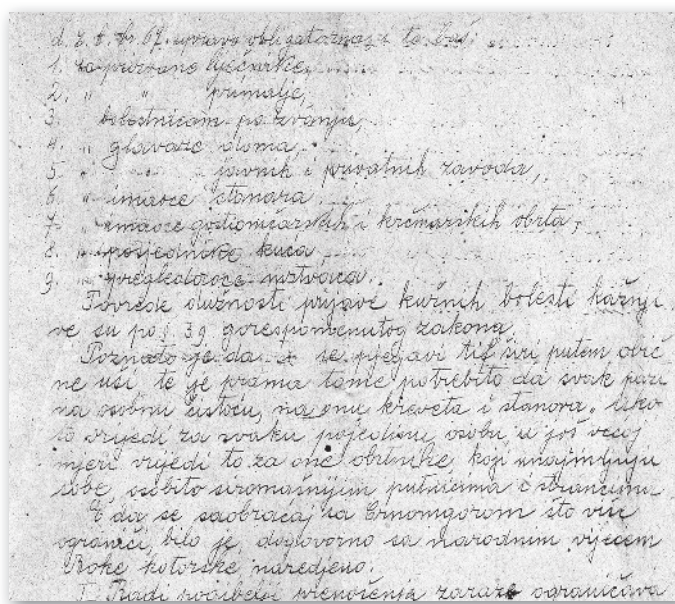 d. z. b. br. 67. upravo obligatorna, i to baš:
1. za pozvane lječnike,
2. " " primalje,
3. " bolestnicam po zvanju,
4. " glavare doma,
5 " " javnih i privatnih zavoda,
6 " imaoce stanova
7. " imaoce gostioničarskih i krčmarskih obrta,
8. " posjednike kuća
9. " pregledaoce mrtvaca.
Povrede dužnosti prijave kužnih bolesti kažnji
ve su po §. 39 gorespomenutog zakona.
Poznato je da se pjegavi tif širi putem obič
ne uši te je prama tome potrebito da svak pazi
na osobnu čistoću, na onu kreveta i stanova. Ako
to vrijedi za svaku pojedinu osobu u još većoj
mjeri vrijedi to za one obrtnike koji unajmljuju
sobe, osobito siromašnijim putnicima i strancima
E da se saobraćaj sa Crnomgorom što više
ograniči, bilo je, dogovorno sa narodnim vijećem
Boke kotorske naredjeno:
I. Radi pogibelji prenošenja zaraze ograničava